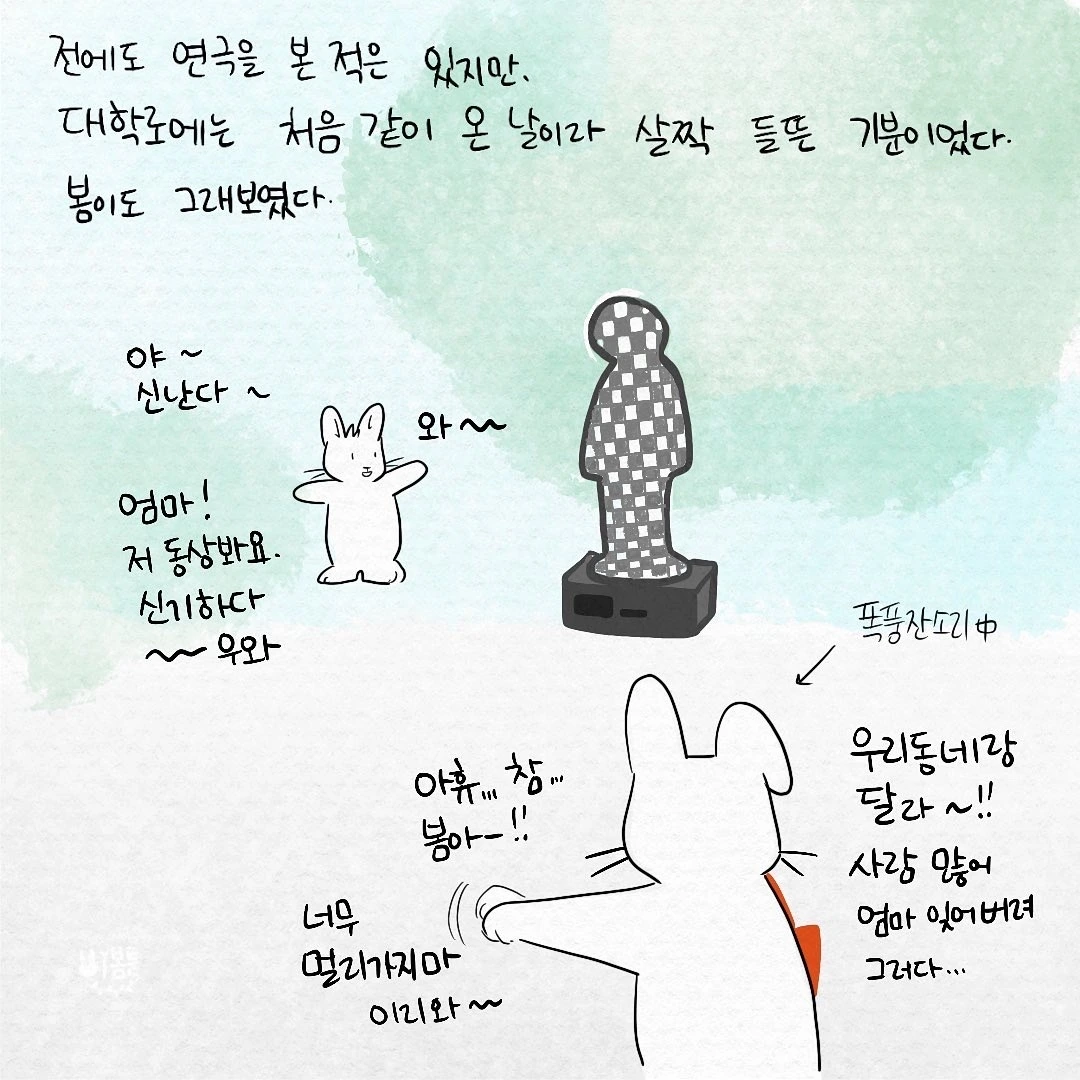 전에도 연극을 본 적은 있지만.
대학로에는 처음 같이 온 날이라 살짝 들뜬 기분이었다.
봄이도 그래보였다.
야~
신난다~
와~~
엄마!
저 동상봐요.
신기하다
~~우와
폭풍잔소리中
아휴,,, 참...
봄아-!!
너무
멀리가지마
이리와~
우리동네랑
달라~!!
사람 많어
엄마 잊어버려
그러다...